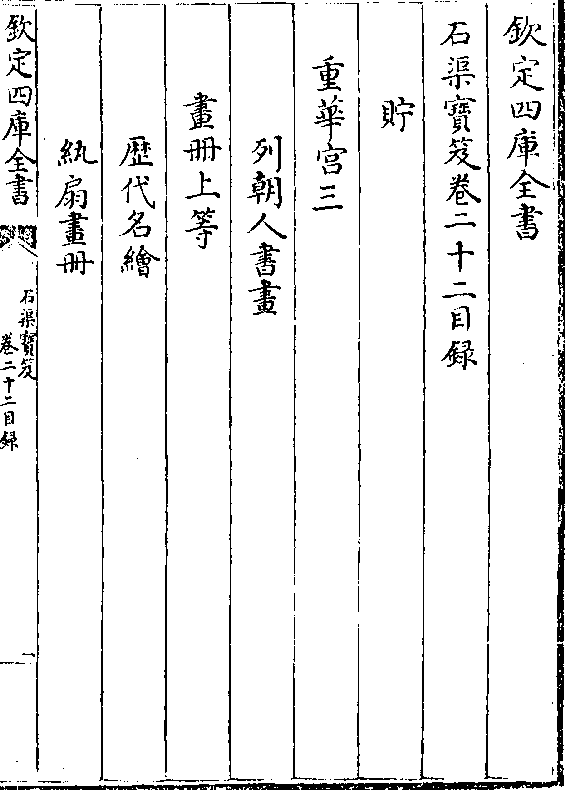 欽定四庫全書
石渠寶笈卷二十二目録
貯
重華宫三
列朝人書畫
畫册上等
歴代名繪
紈扇畫册
欽定四庫全書
石渠寶笈
卷二十二目録
一